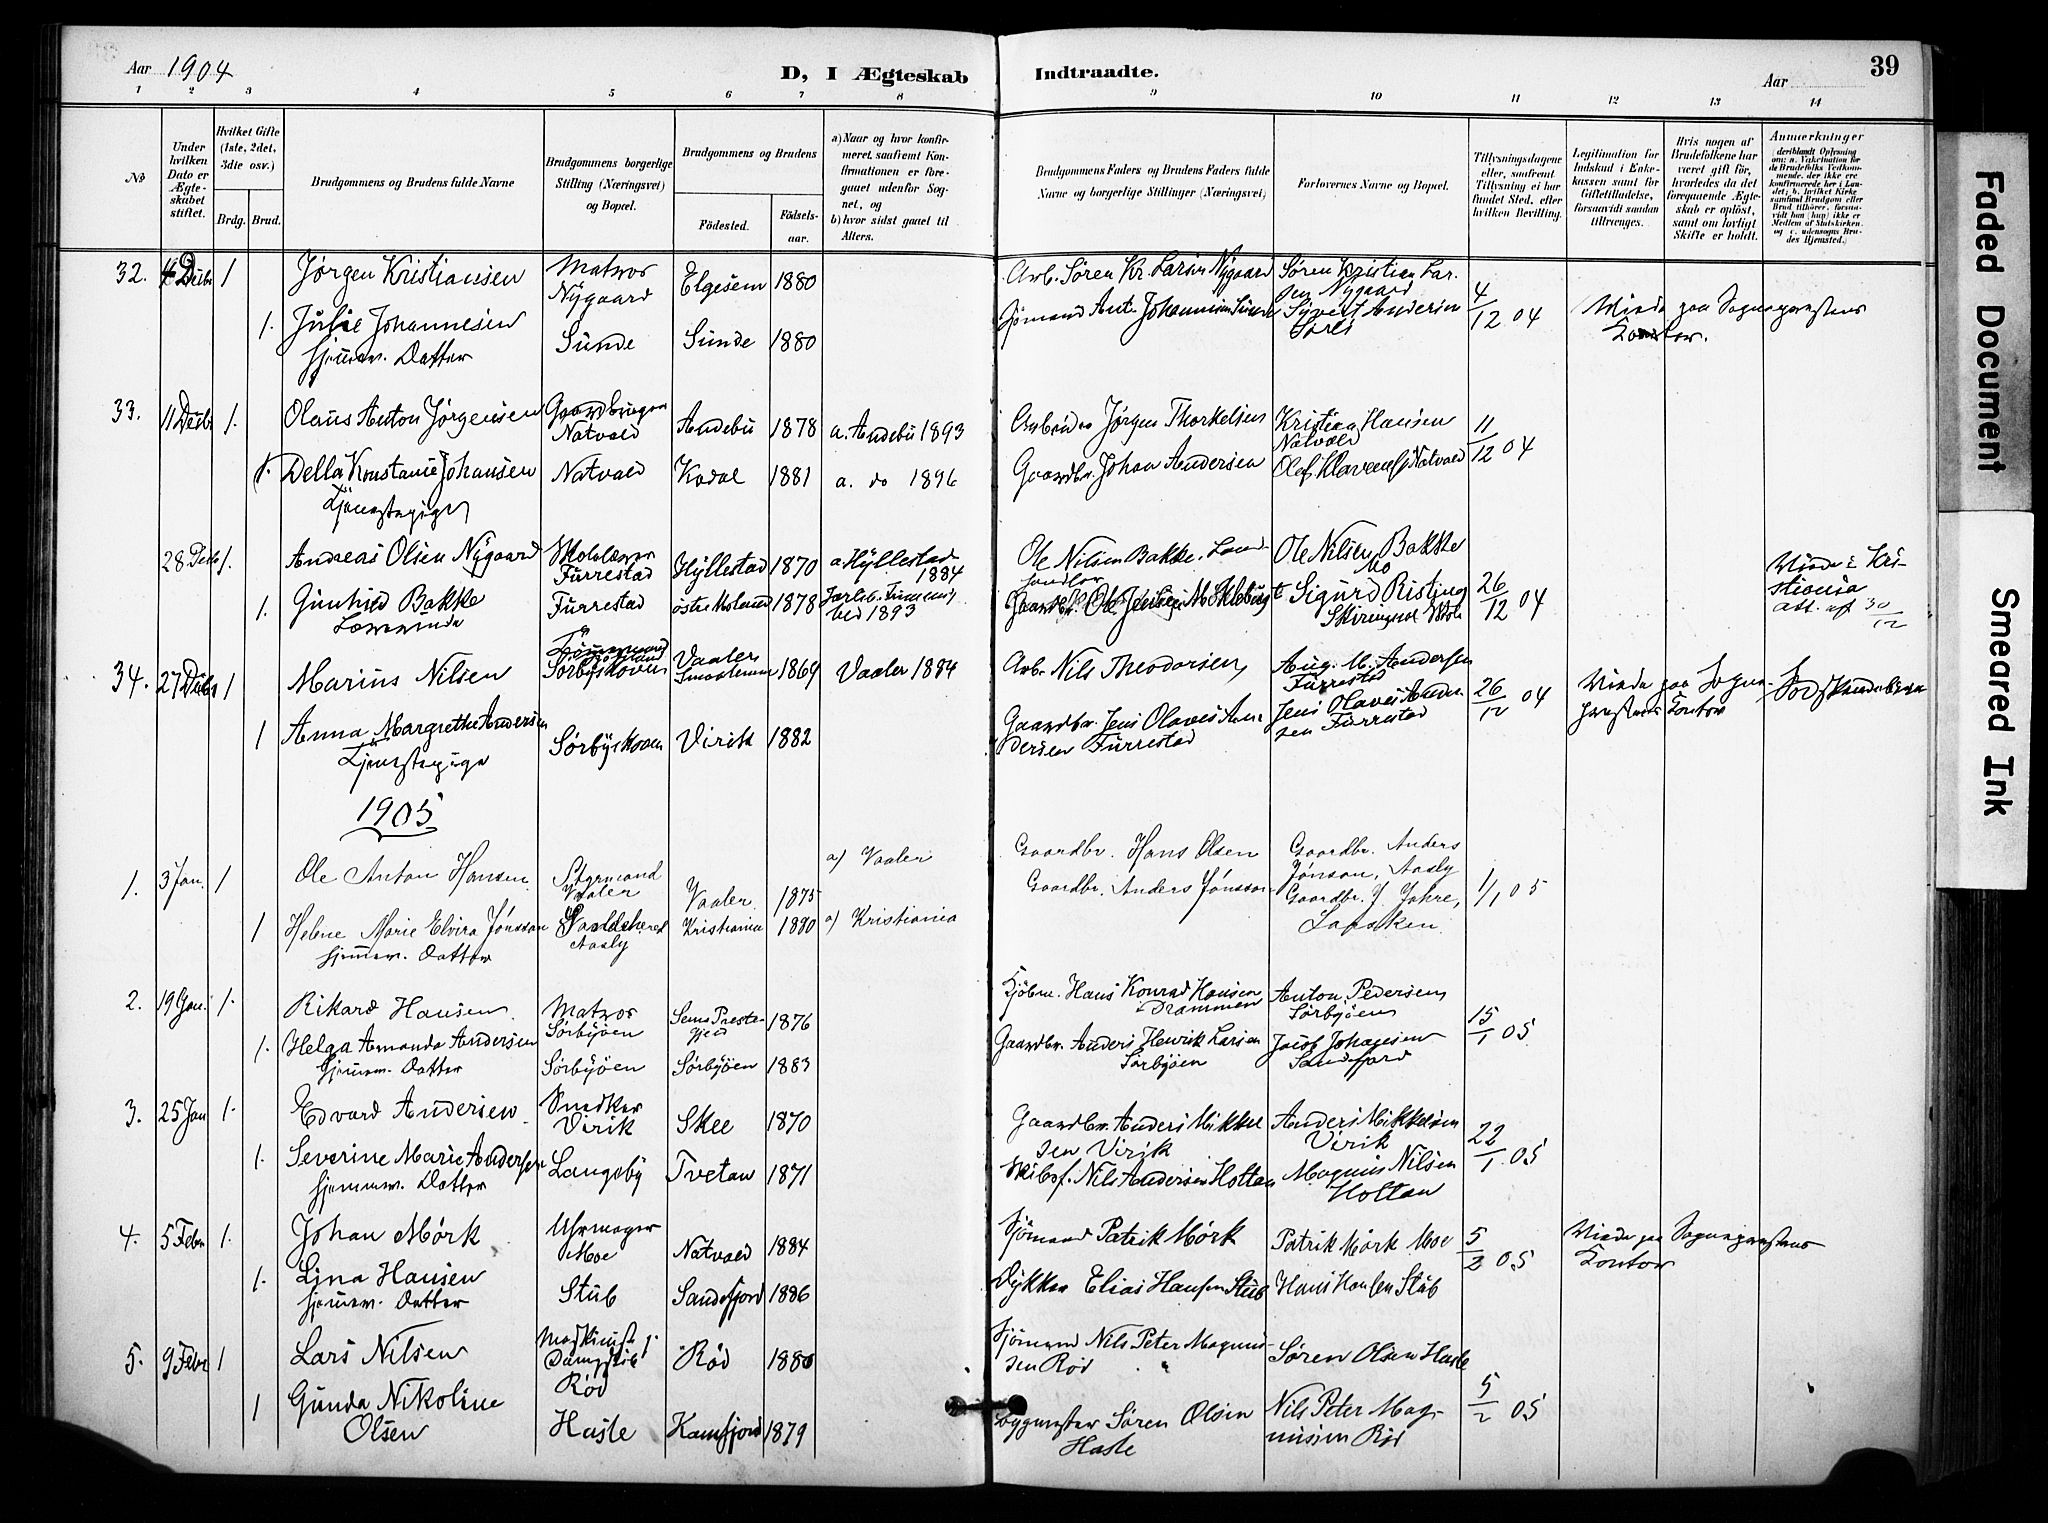 Aar 1904
D, I Ægteskab Indtraadte.
Aar
39
1 2 3 4 5 6 7 8 9 10 11 12 13 14
No
Under hvilken Dato er Ægteskabet stiftet.
Hvilket Gifte (1ste, 2det, 3die osv.)
Brdg. Brud.
Brudgommens og Brudens fulde Navne
Brudgommens borgerlige Stilling (Næringsvei) og Bopæl.
Brudgommens og Brudens
Födested. Födselsaar.
a) Naar og hvor konfirmeret, saafremt Konfirmationen er foregaaet udenfor Sognet, og
b) hvor sidst gaaet til Alters.
Brudgommens Faders og Brudens Faders fulde Navne og borgerlige Stillinger (Næringsvei)
Forlovernes Navne og Bopæl.
Tillysningsdagene eller, saafremt Tillysning ei har fundet Sted, efter hvilken Bevilling.
Legitimation for Indskud i Enkekassen samt for Giftetilladelse, forsaavidt saadan tiltrænges.
Hvis nogen af Brudefolkene har været gift før, hvorledes da det foregaaende Ægteskab er opløst, samt om lovligt Skifte er holdt.
Anmærkninger
32. 1 Jørgen Kristiansen Matros Nygaard Elgesem 1880 Arb. Søren Kr. Larsen Nygaard Søren Kristian Larsen Nygaard 4/12 04 Viede paa Sogneprestens Kontor.
1. Julie Johannesen Sunde Sunde 1880 Sjömand Ant. Johannesen Sunde Syvert Andersen
hjemmv. Datter
33. 11 Decbr 1. Olaus Anton Jørgensen Gaardbruger Natvald Andebu 1878 a. Andebu 1893 Arbeider Jørgen Thorkelsen Kristian Hansen Natvald 11/12 04
1. Della Konstanse Johansen Natvald Kodal 1881 a. do 1896 Gaardbr. Johan Andersen Olaf Klavensen Natvald
Tjenestepige
28 Decb 1. Andreas Olsen Nygaard Skolelærer Furrestad Hyllestad 1870 a. Hyllestad 1884 Ole Nilsen Bakke, Landhandler Ole Nilsen Bakke Mo 26/12 04 Viede i Kristiania att. af 30/12
1. Gunhild Bakke Furrestad østre Moland 1878 1893 Gaardbr. Ole Jensen Mokleburst Sigurd Risting Skiringssal
Lærerinde
34. 27 Decbr 1 Marius Nilsen Tømmermand Sørbyskoven Vaaler Smaalenene 1869 Vaaler 1884 Arb. Nils Theodorsen, Aug. M. Andersen Furrestad 26/12 04 Viede paa Sogneprestens Kontor
1 Anna Margrethe Andersen Sørbyskoven Virik 1882 Gaardbr. Jens Olaves Andersen Furrestad Jens Olaves Andersen Furrestad
Tjenestepige
1905
1. 3 Jan. 1 Ole Anton Hansen Styrmand Vaaler Vaaler 1875 a) Vaaler Gaardbr. Hans Olsen Gaardbr. Anders Jönson, Aasly 1/1 05
1 Helene Marie Elvira Jönsson Sandeherred Aasly Kristiania 1880 a) Kristiania Gaardbr. Anders Jönsson Gaardbr. J. Jahre,
hjemmv. Datter
2. 19 Jan. 1. Rikard Hansen Matros Sørbyøen Sems Prestegjeld 1876 Kjöbm. Hans Konrad Hansen i Drammen Anton Pedersen Sørbyøen 15/1 05
1. Helga Amanda Andersen Sørbyøen Sørbyøen 1883 Gaardbr. Anders Henrik Larsen Sørbyøen Jacob Johansen Sandefjord
hjemmv. Datter
3. 25 Jan 1. Edvard Andersen Snedker Virik Skee 1870 Gaardbr. Anders Mikkelsen Virik Anders Mikkelsen Virik 22/1 05
1. Severine Marie Andersen Langeby Tvetan 1871 Skibsf. Nils Andersen Holtan Magnus Nilsen Holtan
hjemmv. Datter
4. 5 Febr 1. Johan Mørk Uhrmager Moe Natvald 1884 Sjömand Patrik Mørk Patrik Mørk Moe 5/2 05 Viede paa Sogneprestens Kontor
1. Lina Hansen Stub Sandefjord 1886 Dykker Elias Hansen Stub Hans Hansen Stub
hjemmv. Datter
5. 9 Febr 1 Lars Nilsen Maskinist Rød Rød 1880 Sjömand Nils Peter Magnussen Rød Søren Olsen Hasle 5/2 05
1 Gunda Nikoline Olsen Hasle Kamfjord 1879 Bygmester Søren Olsen Hasle Nils Peter Magnussen Rød
Faded Document
Smeared Ink